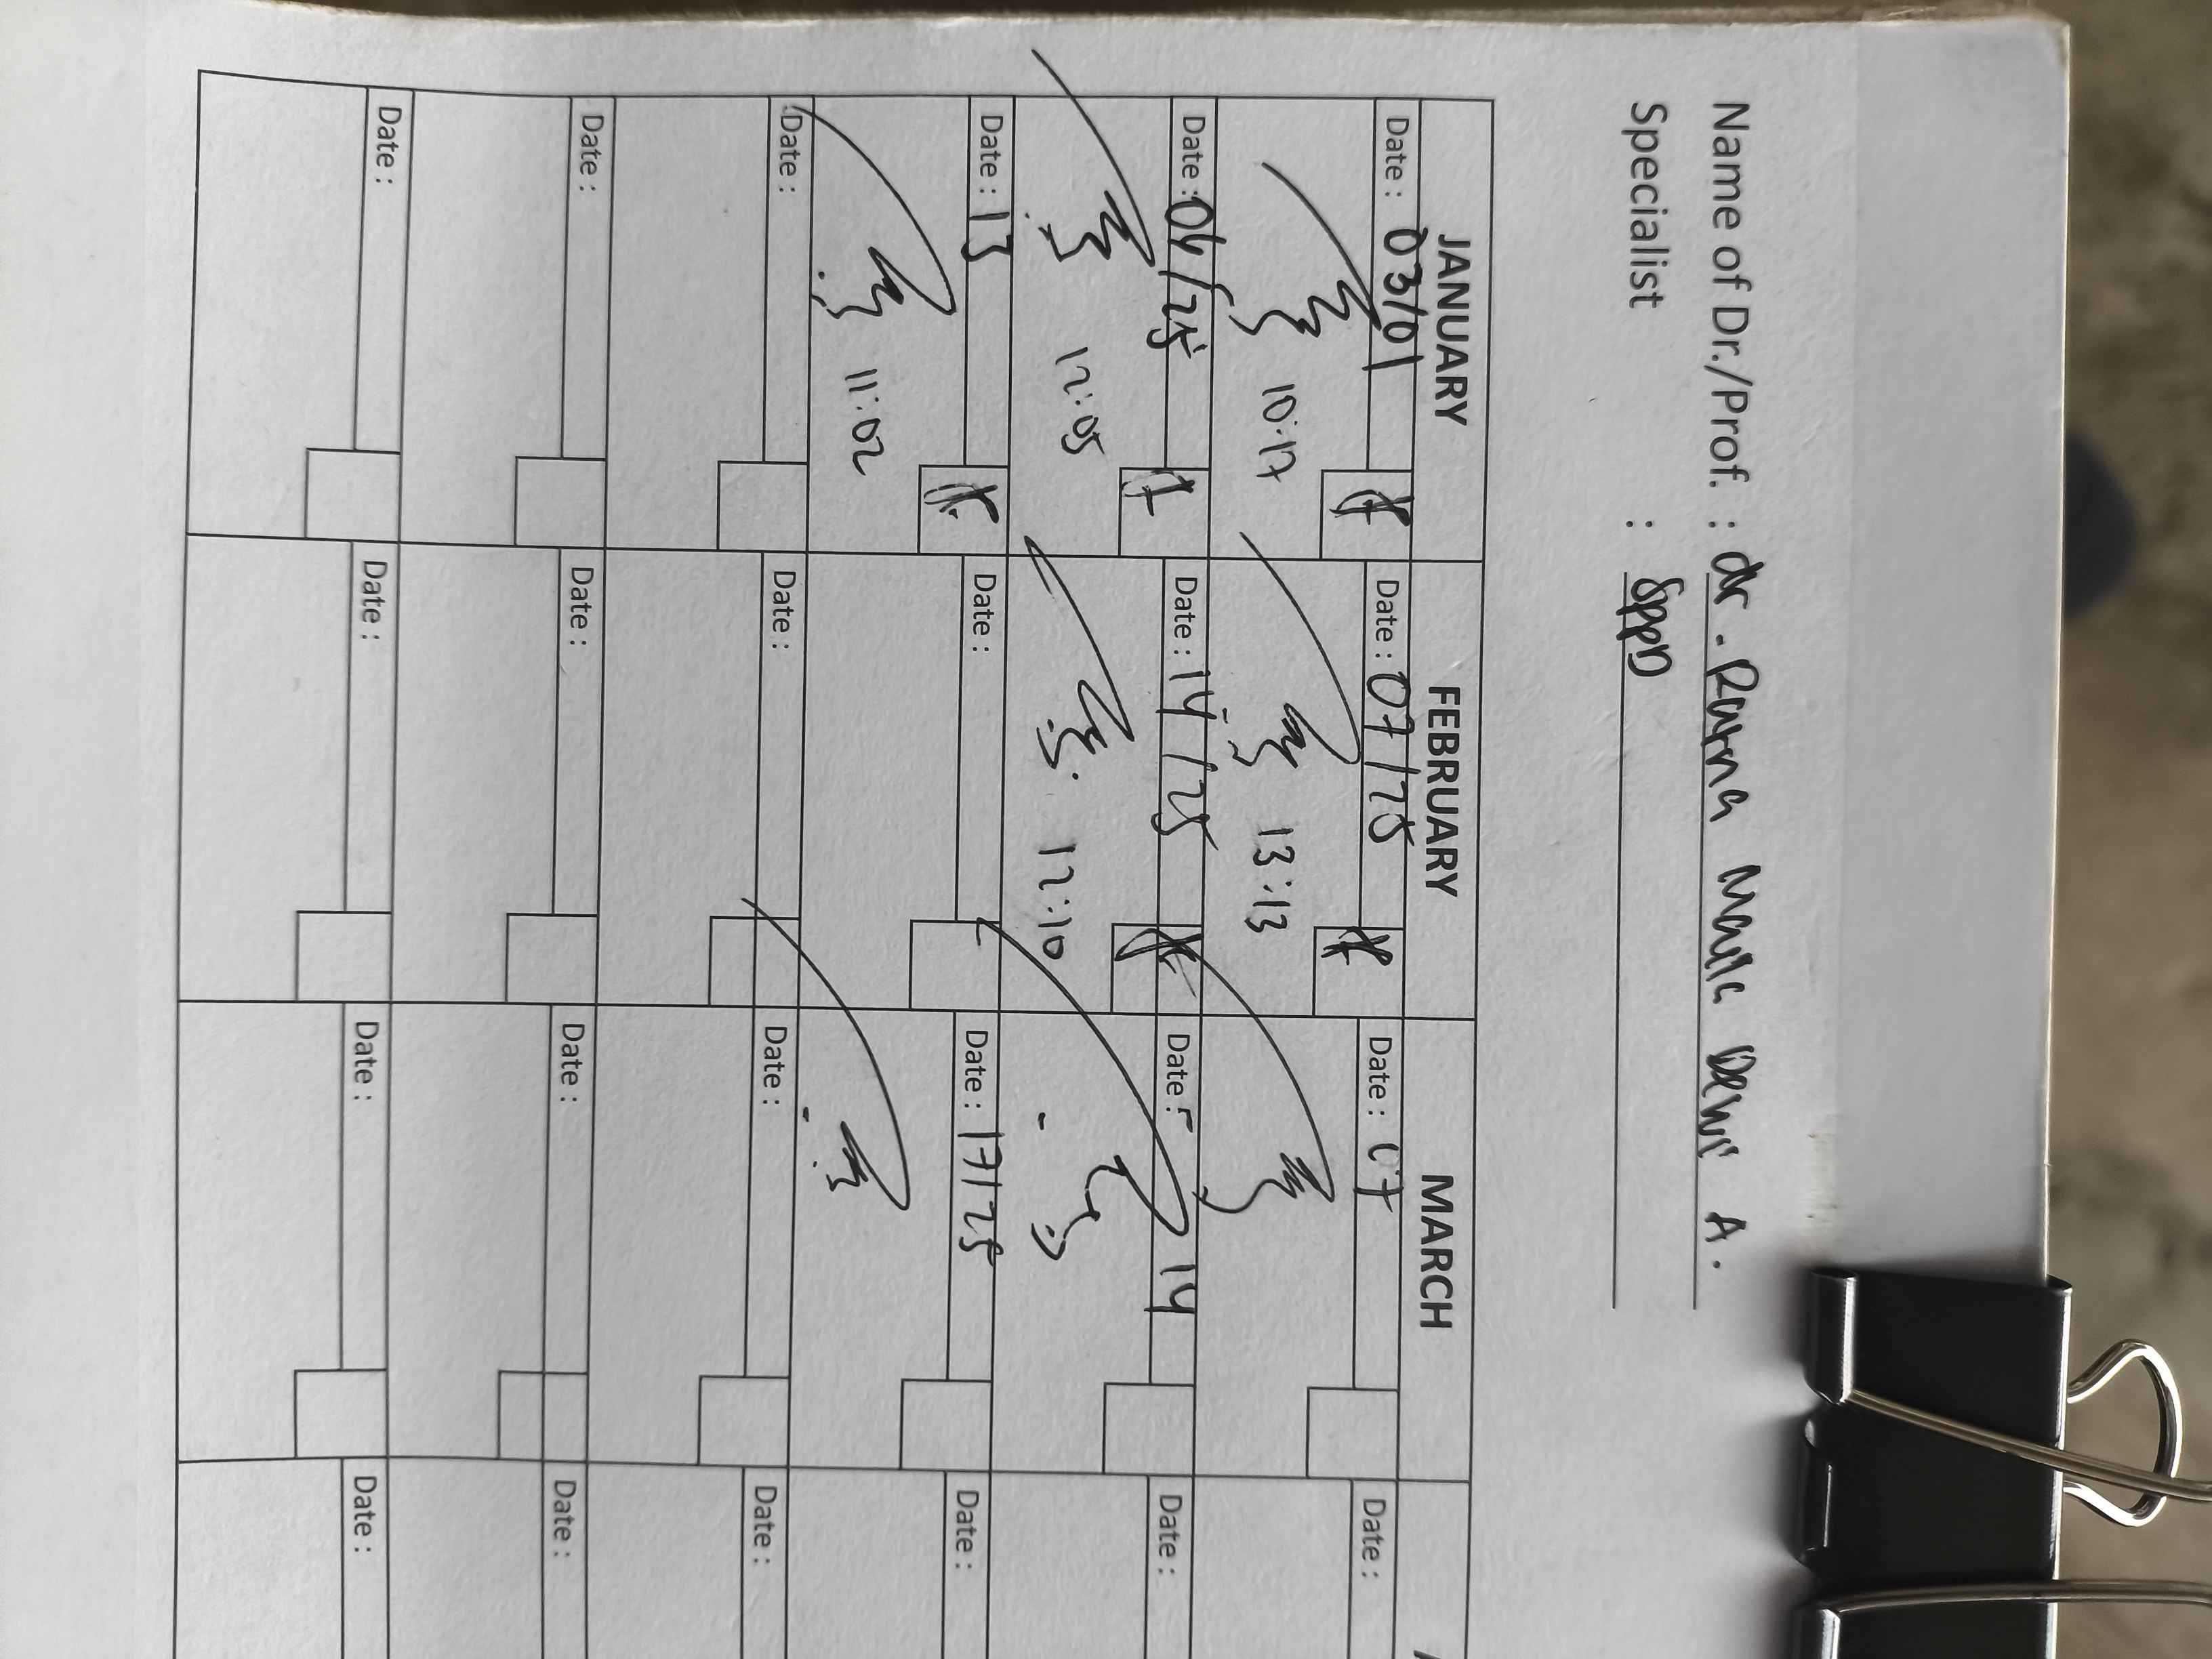 Name of Dr./Prof. : dr. Ratna Maula Dewi A.
Specialist : SppD
JANUARY FEBRUARY MARCH
Date : 03/01 Date : 07/25 Date : 07
10:17 13:13
Date : 06/25 Date : 14/25 Date : 14
12:05 12:10
Date : 13 Date : Date : 17/25
11:02
Date : Date : Date : Date :
Date : Date : Date : Date :
Date : Date : Date : Date :